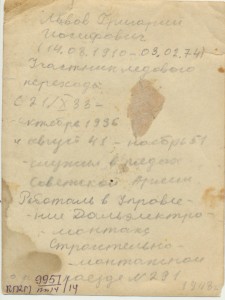 Львов Григорий
Иосифович
(14.08.1910 - 03.02.74)
Участник ледового
перехода
с 21/X 33 -
октябре 1936
и август 41 - ноябрь 51
служил в рядах
Советской Армии
Работал в Управле-
ние Дальэлектро-
монтаж
Строительно-
монтажном
поезде № 291
9951